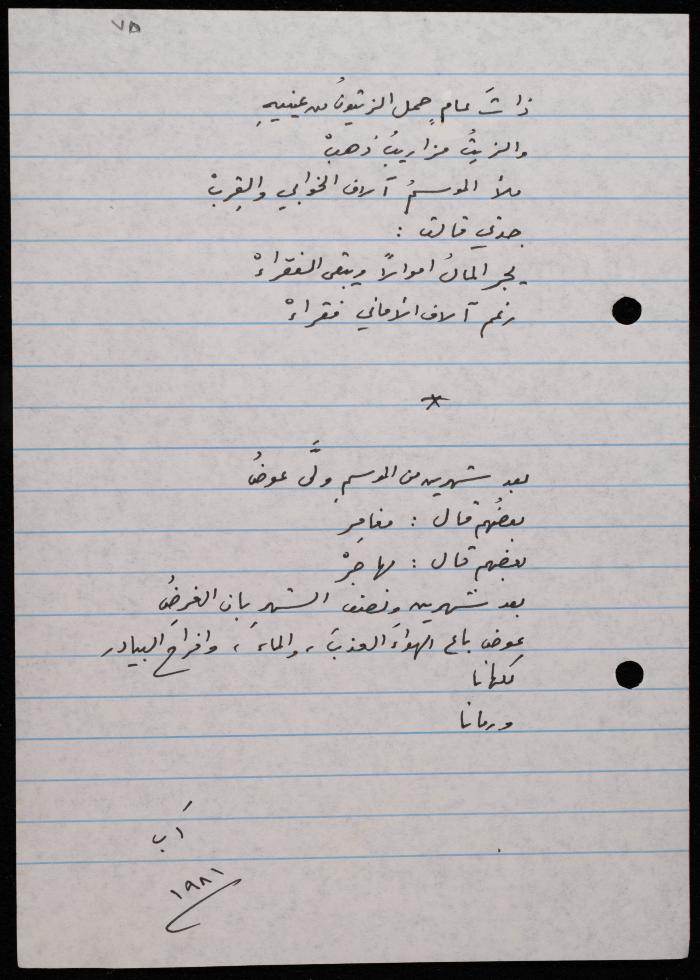 ٧٥
ذاتَ عامٍ حمل الزيتونُ من عينيهِ
والزيتُ مزاريبُ ذهبْ
ملأ الموسمُ آلاف الخوابي والقِربْ
جدتي قالت :
يجر المالُ اموالاً ويبقى الفقراءْ
رغم آلاف الأماني فقراءْ
*
بعد شهرين من الموسمِ ولَّى عوضُ
بعضُهم قال : مغامِر
بعضهم قال : هاجَرْ
بعد شهرين ونصف الشهرِ بان الغرضُ
عوض باع الهواءَ العذبَ ، والماء ، وافراح البيادر
كلها
ورمانا
آب
١٩٨١